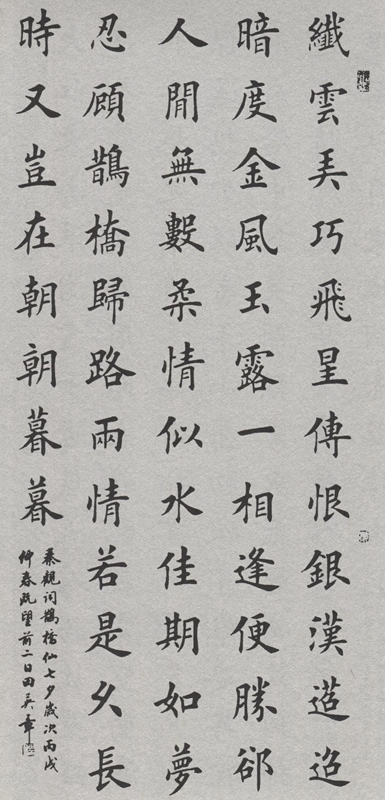 纖雲弄巧飛星傳恨銀漢迢迢
暗度金風玉露一相逢便勝卻
人間無數柔情似水佳期如夢
忍顧鵲橋歸路兩情若是久長
時又豈在朝朝暮暮
秦觀詞鵲橋仙七夕歲次丙戌
仲春既望前二日田英章